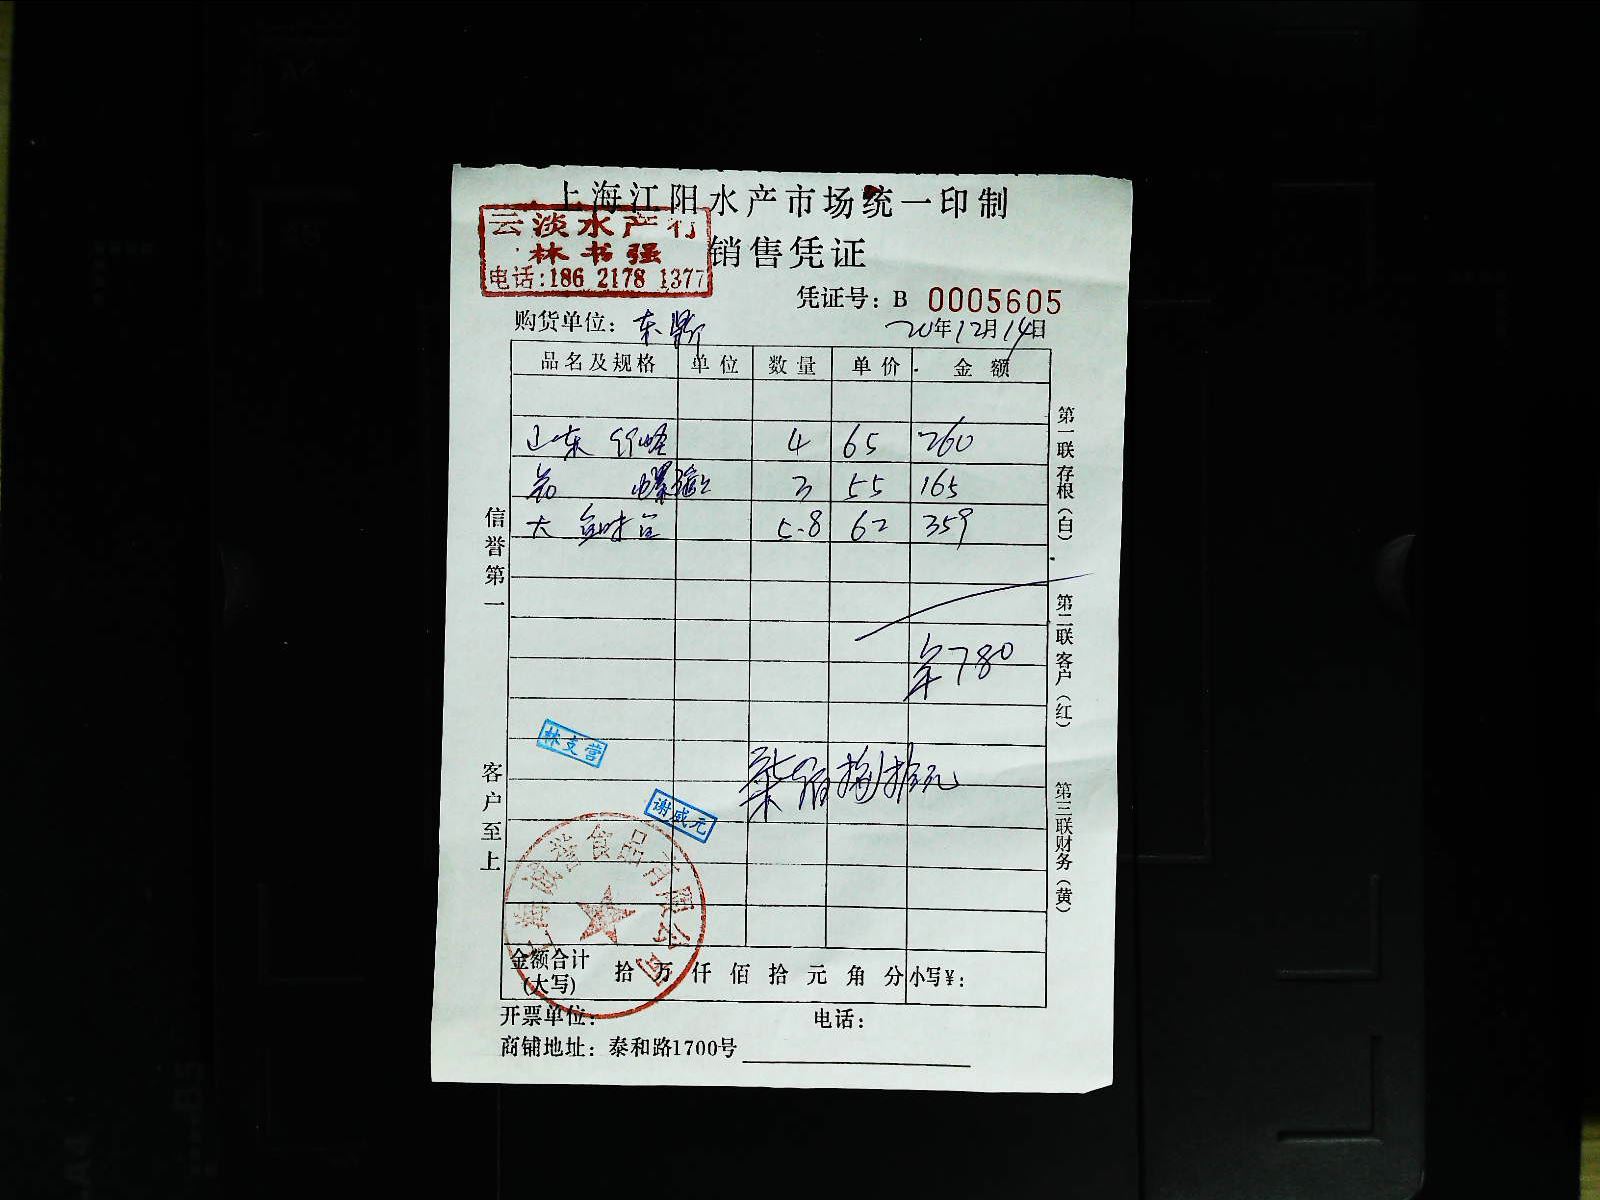 上海江阳水产市场统一印制
云淡水产行
林书强
电话:186 2178 1377
销售凭证
凭证号: B 0005605
购货单位: 东
20年12月14日
品名及规格 单位 数量 单价 金额
山东 4 65 260
螺 3 55 165
大 5.8 62 359
¥780
柒佰捌拾元
信誉第一
客户至上
第一联存根(白)
第二联客户(红)
第三联财务(黄)
林支营
谢成元
上海诚誉食品有限公司
金额合计(大写) 拾 万 仟 佰 拾 元 角 分 小写¥:
开票单位: 电话:
商铺地址: 泰和路1700号